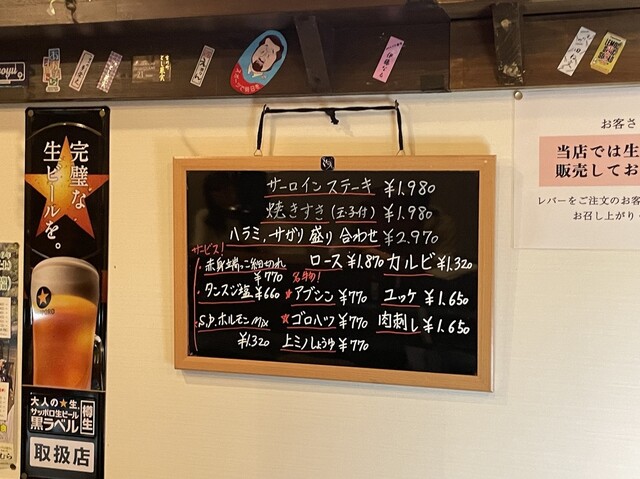 サーロインステーキ ¥1.980
焼きすき(玉子付) ¥1.980
ハラミ,サガリ盛り合わせ ¥2.970
サービス!
赤身端っこ細切れ ¥770
タンスジ塩 ¥660
S.P.ホルモンMix ¥1320
ロース ¥1.870
カルビ ¥1.320
名物!
★アブシン ¥770
★ゴロハツ ¥770
上ミノしょうゆ ¥770
ユッケ ¥1.650
肉刺し ¥1.650
完璧な
生ビールを。
大人の★生。
サッポロ生ビール
黒ラベル
樽生
取扱店
お客さ
当店では生
販売してお
レバーをご注文のお客
お召し上がり